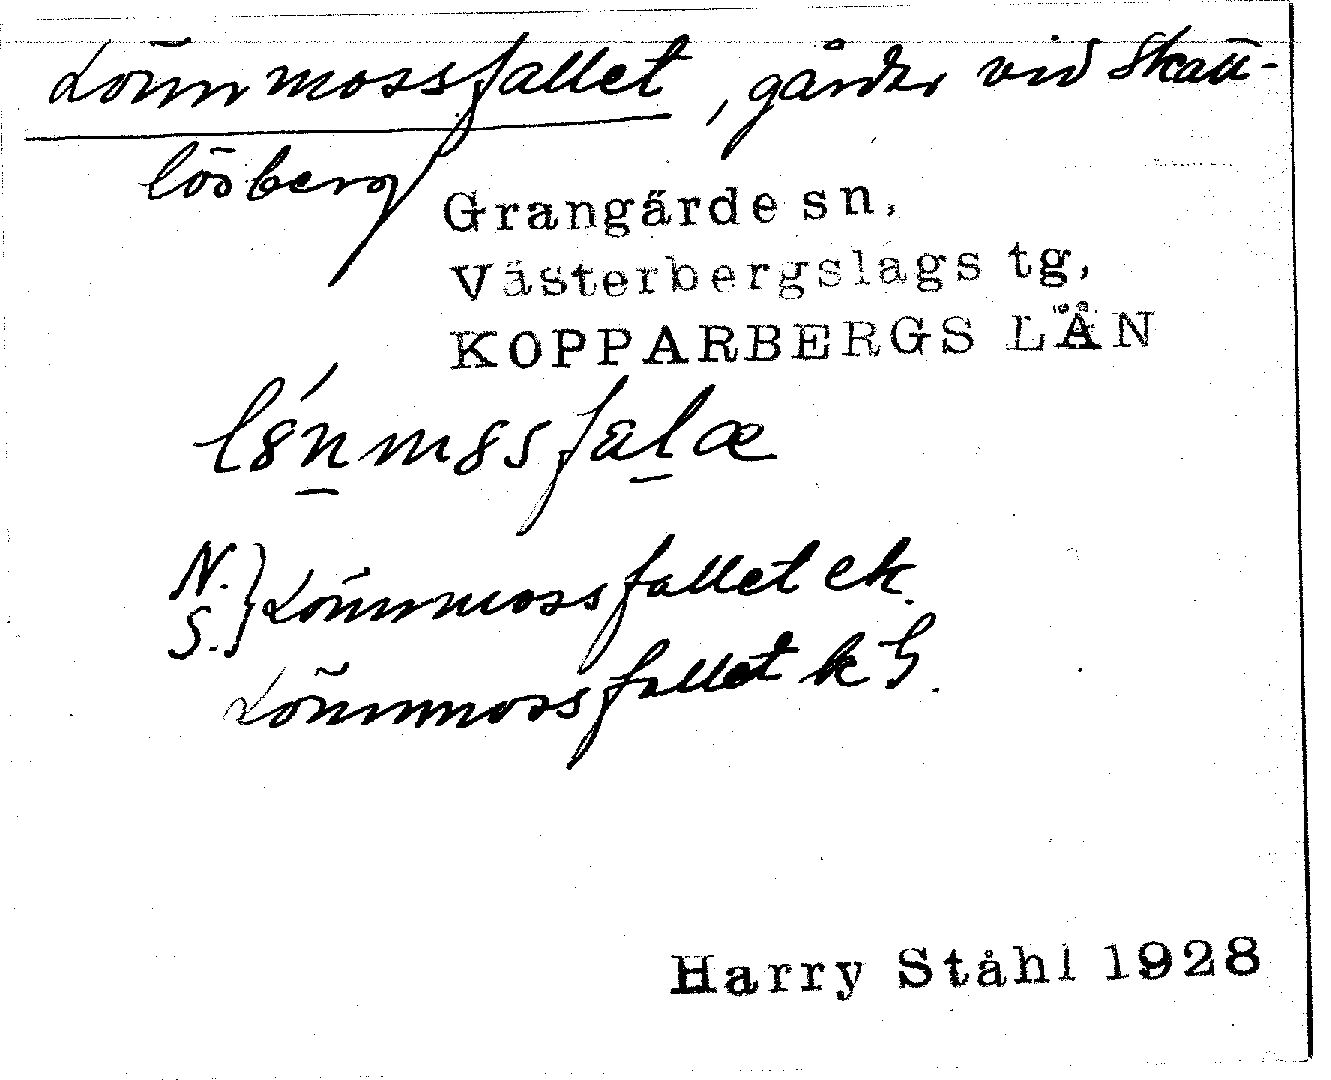 Lönnmossfallet, gårdar vid Skatt-
lösberg
Grangärde sn,
Västerbergslags tg,
KOPPARBERGS LÄN
N.
S. } Lönnmossfallet ek.
Lönnmossfallet k G.
Harry Ståhl 1928